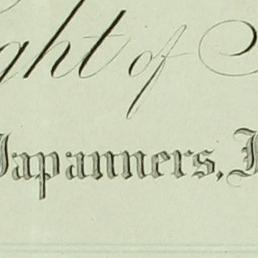 ght of
Japanners,